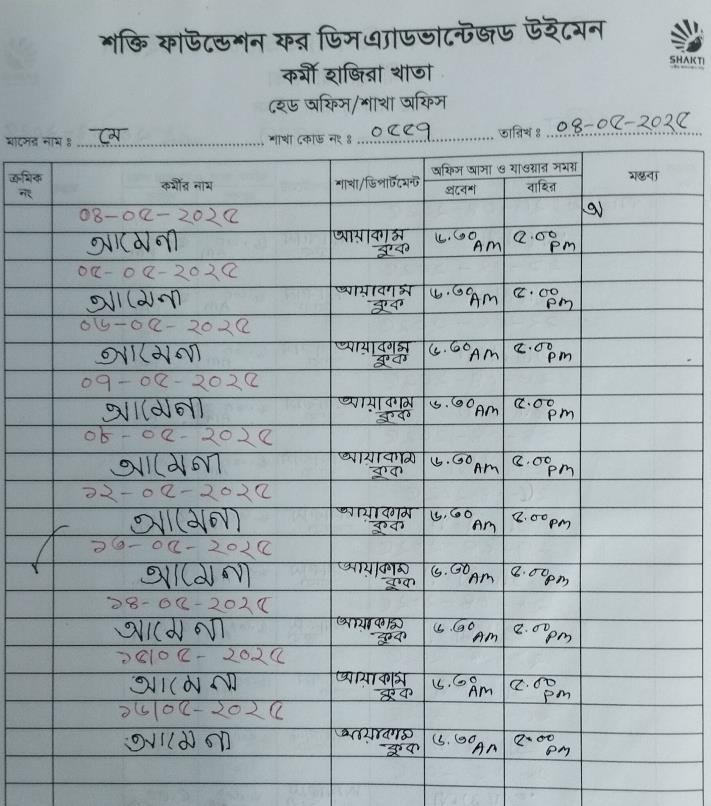 শক্তি ফাউন্ডেশন ফর ডিসএ্যাডভান্টেজড উইমেন
SHAKTI
কর্মী হাজিরা খাতা
হেড অফিস/শাখা অফিস
মাসের নাম ঃ মে শাখা কোড নং ঃ ০৫৫৭ তারিখ ঃ ০৪-০৫-২০২৫
ক্রমিক নং কর্মীর নাম শাখা/ডিপার্টমেন্ট অফিস আসা ও যাওয়ার সময় মন্তব্য
প্রবেশ বাহির
০৪-০৫-২০২৫ অ
আমেনা আয়াকাম কুক ৬.৩০ AM ৫.০০ PM
০৫-০৫-২০২৫
আমেনা আয়াকাম কুক ৬.৩০ AM ৫.০০ PM
০৬-০৫-২০২৫
আমেনা আয়াকাম কুক ৬.৩০ AM ৫.০০ PM
০৭-০৫-২০২৫
আমেনা আয়াকাম কুক ৬.৩০ AM ৫.০০ PM
০৮-০৫-২০২৫
আমেনা আয়াকাম কুক ৬.৩০ AM ৫.০০ PM
১২-০৫-২০২৫
আমেনা আয়াকাম কুক ৬.৩০ AM ৫.০০ PM
১৩-০৫-২০২৫
আমেনা আয়াকাম কুক ৬.৩০ AM ৫.০০ PM
১৪-০৫-২০২৫
আমেনা আয়াকাম কুক ৬.৩০ AM ৫.০০ PM
১৫/০৫-২০২৫
আমেনা আয়াকাম কুক ৬.৩০ AM ৫.০০ PM
১৬/০৫-২০২৫
আমেনা আয়াকাম কুক ৬.৩০ AM ৫.০০ PM